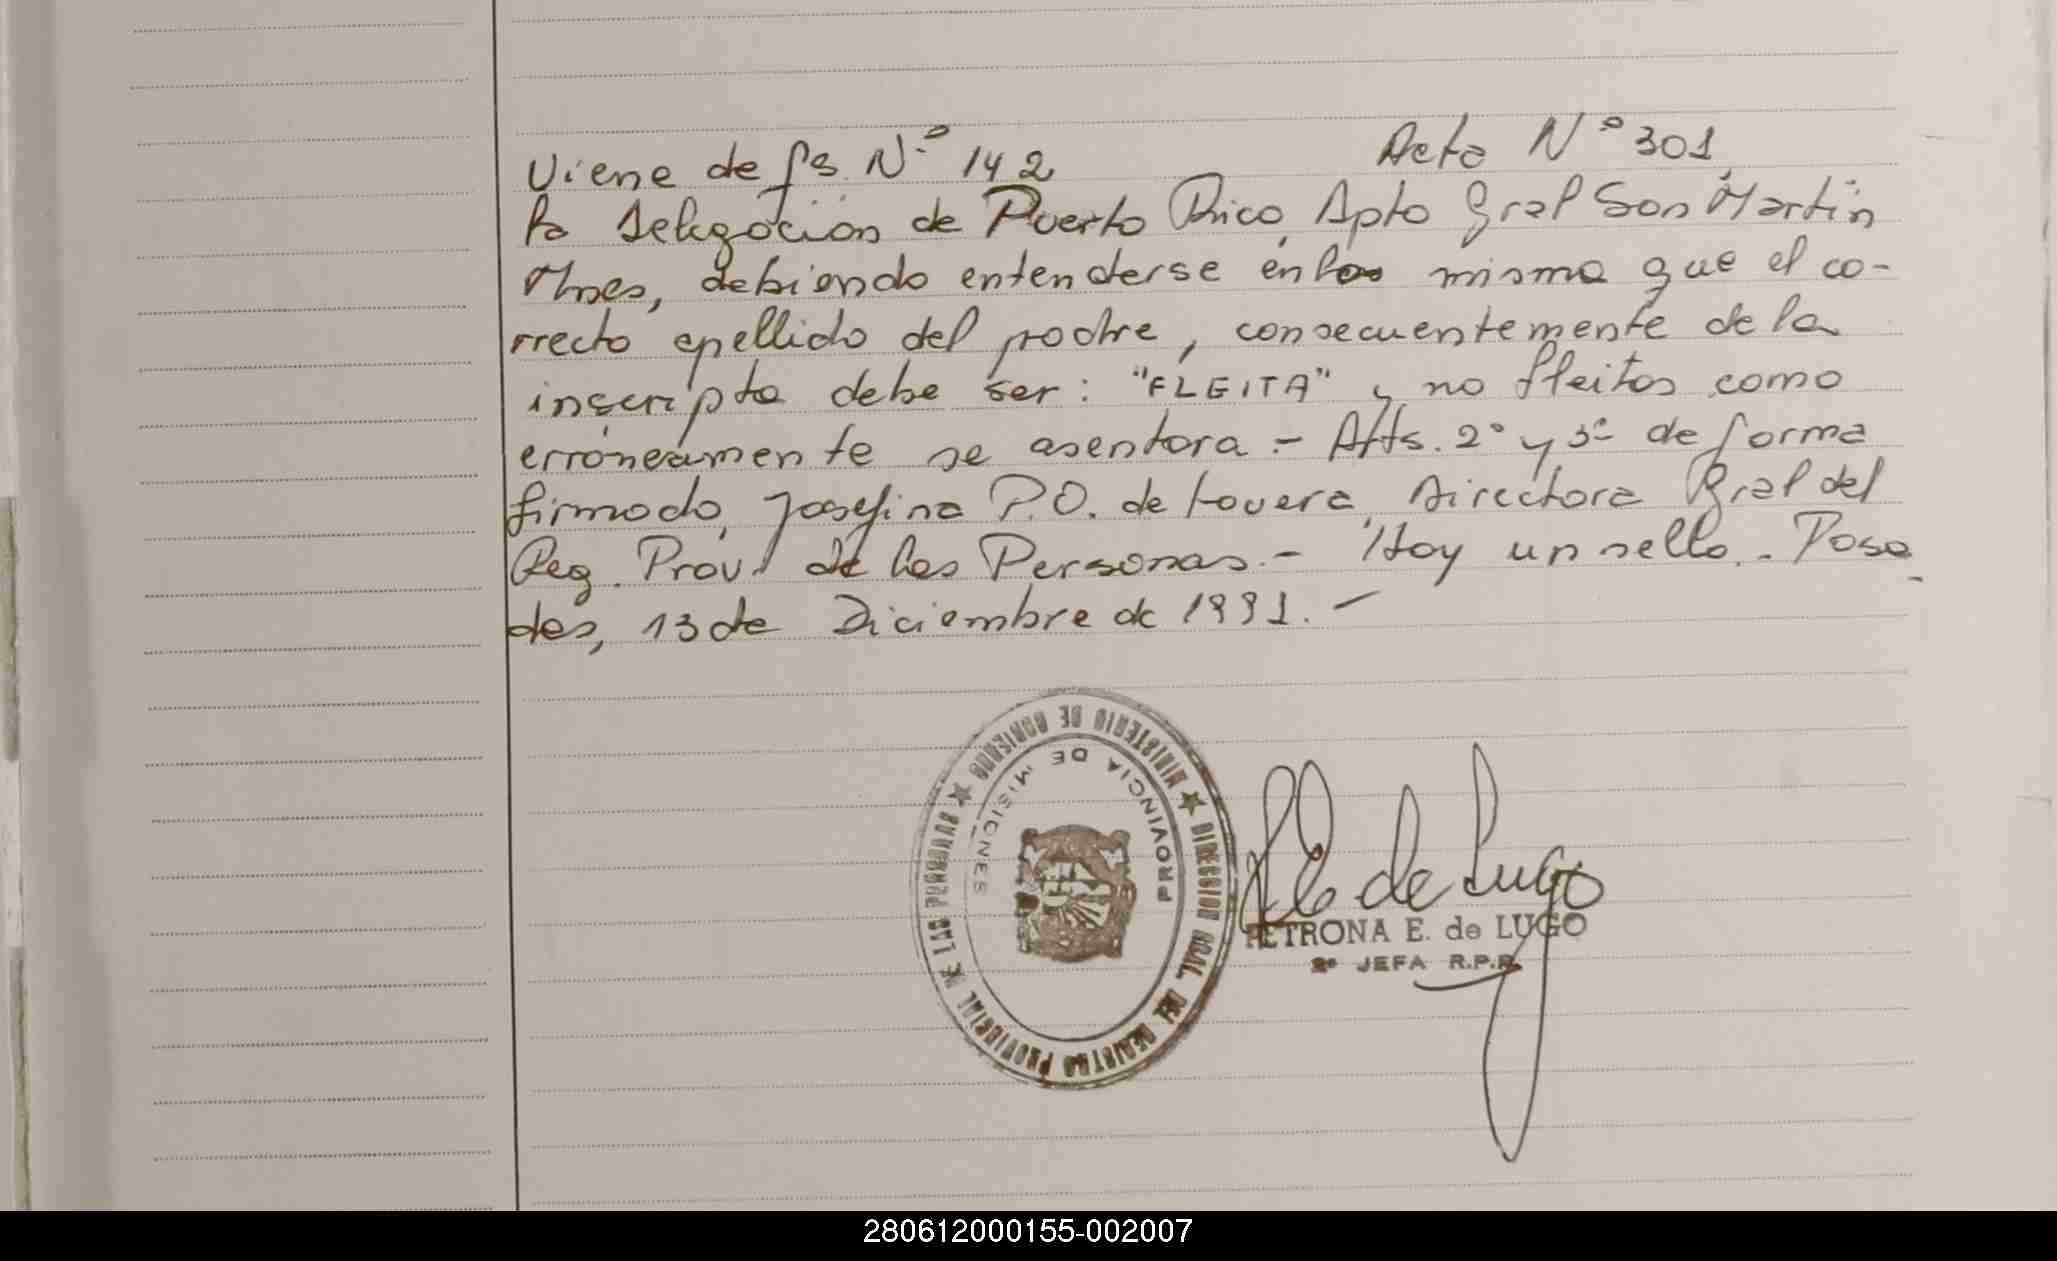 Viene de fs. Nº 142 Acta Nº 301
la Delegación de Puerto Rico, Dpto Gral San Martín
Mnes, debiendo entenderse en la misma que el co-
rrecto apellido del padre, consecuentemente de la
inscripta debe ser: "FLEITA" y no fleitas como
erróneamente se asentara - Arts. 2º y 3º de forma
firmado, Josefina P.O. de Lovera, Directora Gral del
Reg. Prov. de las Personas. - Hay un sello. - Posa
das, 13 de Diciembre de 1991. -
MINISTERIO DE GOBIERNO ★ DIRECCION GRAL. DEL REGISTRO PROVINCIAL DE LAS PERSONAS ★
PROVINCIA DE MISIONES
de Lugo
PETRONA E. de LUGO
2º JEFA R.P.P.
280612000155-002007